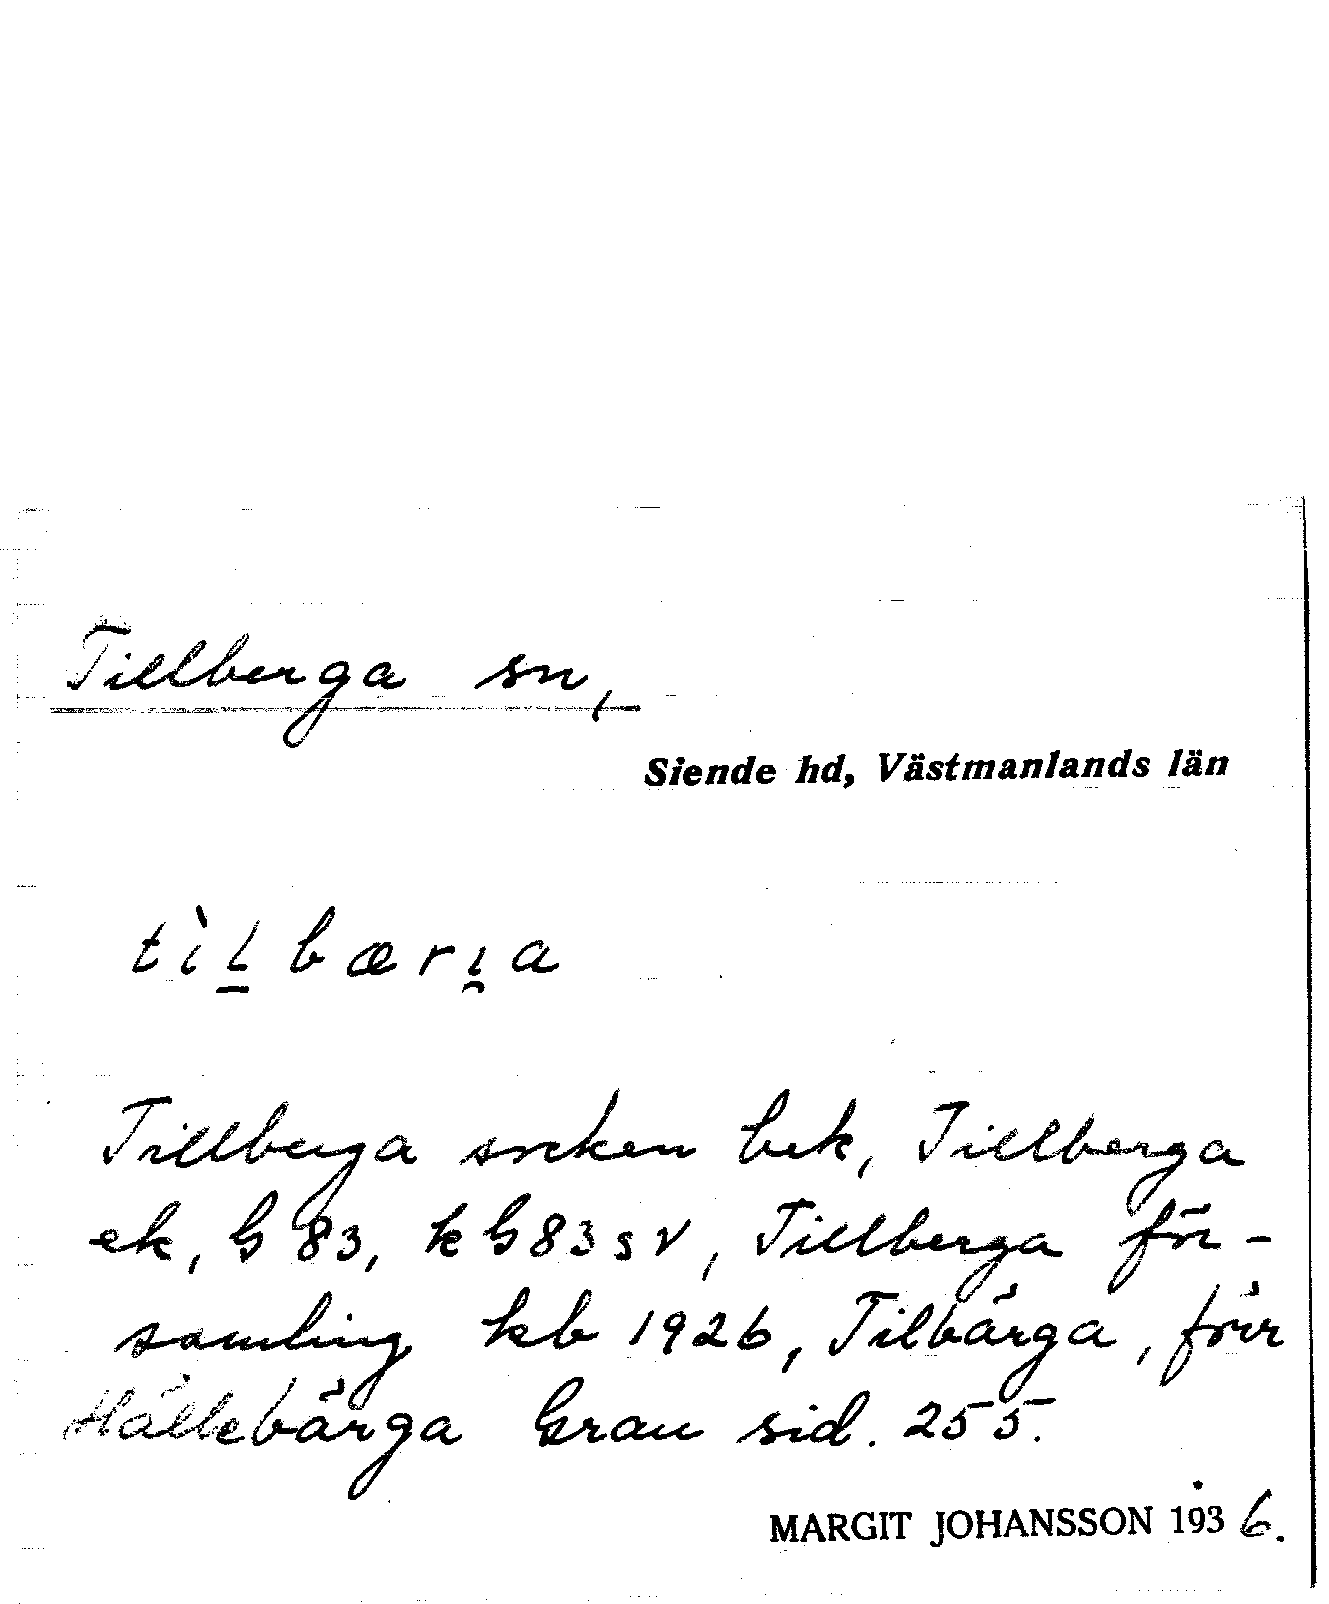 Tillberga sn,
Siende hd, Västmanlands län
tìḻbæri̯a
Tillberga socken bek, Tillberga
ek, G 83, k G 83 s v, Tillberga för-
samling kb 1926, Tilbärga, förr
Hällebärga Grau sid. 255.
MARGIT JOHANSSON 1936.